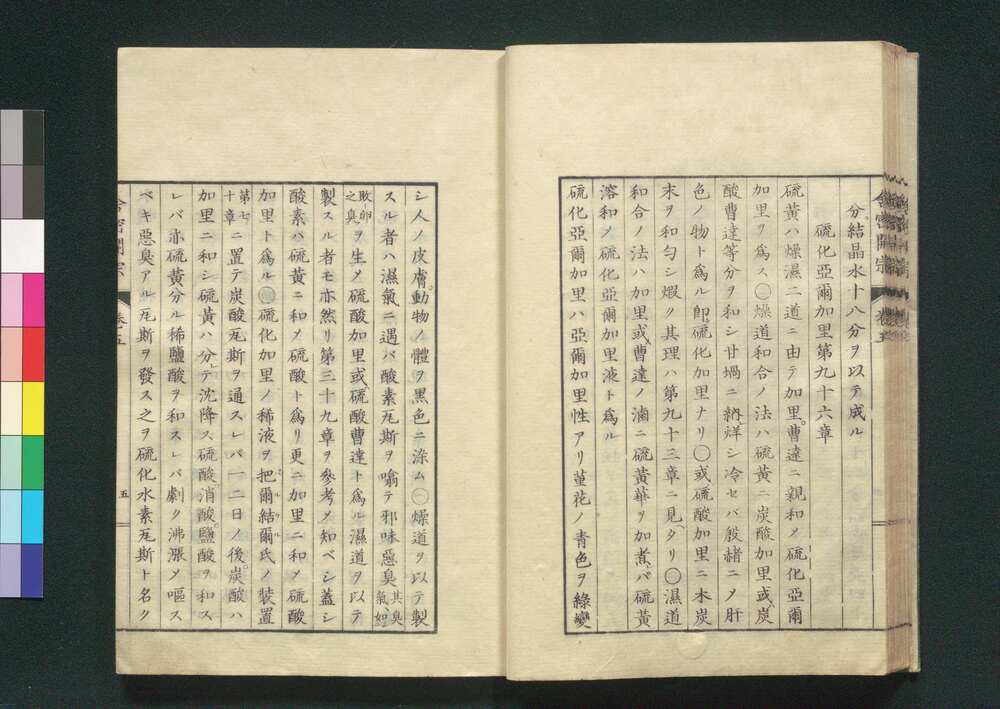 分結晶水十八分ヲ以テ成ル
硫化亞爾加里第九十六章
硫黄ハ燥濕二道ニ由テ加里。曹達ニ親和メ硫化亞爾
加里ヲ爲ス〇燥道和合ノ法ハ硫黄ニ炭酸加里或炭
酸曹達等分ヲ和シ甘堝ニ納烊シ冷セバ殷赭ニメ肝
色ノ物ト爲ル卽硫化加里ナリ〇或硫酸加里ニ木炭
末ヲ和匀シ煆ク其理ハ第九十三章ニ見タリ〇濕道
和合ノ法ハ加里或曹達ノ滷ニ硫黄華ヲ加煮バ硫黄
溶和メ硫化亞爾加里液ト爲ル
硫化亞爾加里ハ亞爾加里性アリ菫花ノ青色ヲ綠變
シ人ノ皮膚。動物ノ體ヲ黒色ニ涂ム〇燥道ヲ以テ製
スル者ハ濕氣ニ遇バ酸素瓦斯ヲ噏テ邪味惡臭其臭氣如
敗卵之臭ヲ生メ硫酸加里或硫酸曹達ト爲ル濕道ヲ以テ
製スル者モ亦然リ第三十九章ヲ參考メ知ベシ蓋シ
酸素ハ硫黄ニ和メ硫酸ト爲リ更ニ加里ニ和メ硫酸
加里ト爲ル〇硫化加里ノ稀液ヲ把爾結爾氏ノ裝置
第七十章ニ置テ炭酸瓦斯ヲ通スレバ一二日ノ後炭酸ハ
加里ニ和シ硫黄ハ分テ沈降ス硫酸。消酸。鹽酸ヲ和ス
レバ亦硫黄分ル稀鹽酸ヲ和スレバ劇ク沸漲メ嘔ス
ベキ惡臭アル瓦斯ヲ發ス之ヲ硫化水素瓦斯ト名ク
舎密開宗 卷五
五